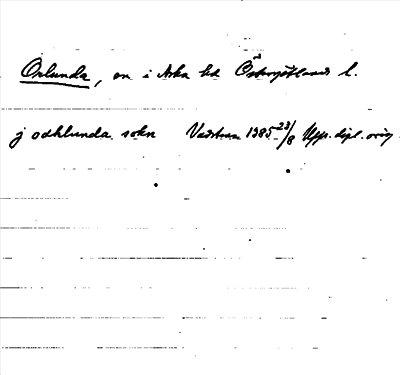 Orlunda, sn i Aska hd Östergötlands l.
j odhlunda sokn Vadstena 1385 23/8 Upps. dipl. orig.